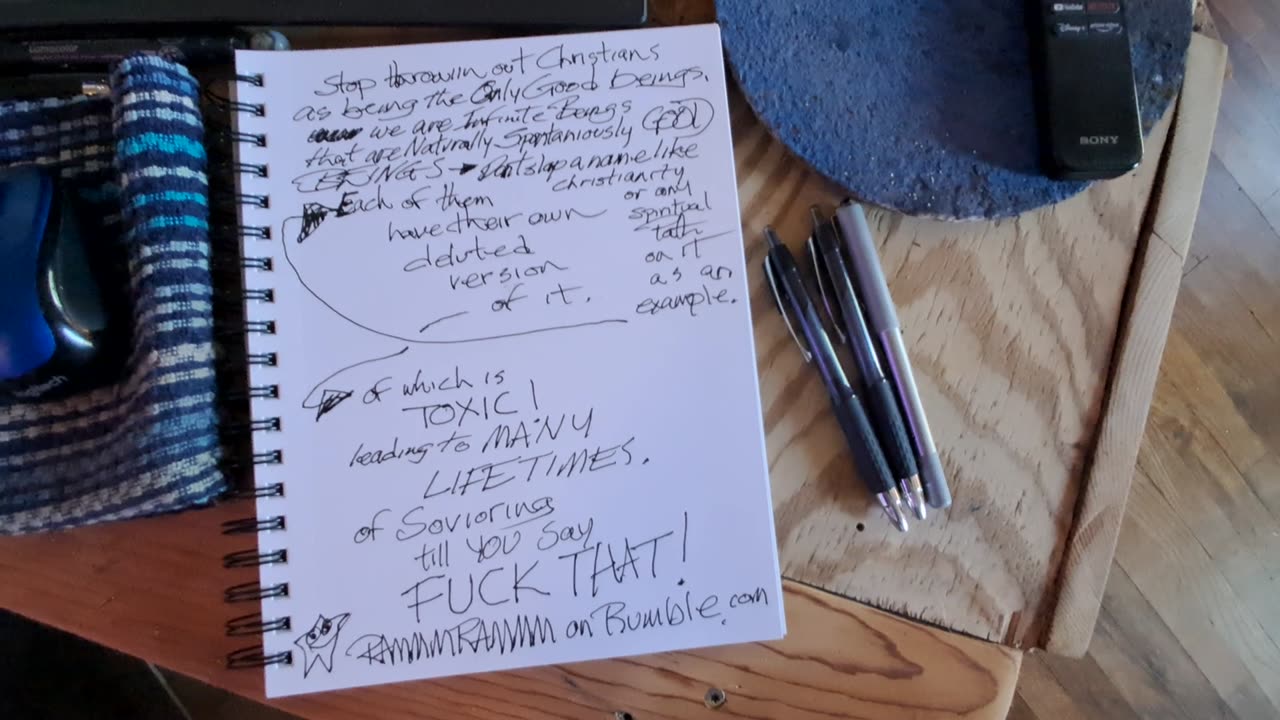 Stop throwin out Christians
as being the Only Good beings.
we are Infinite Beings
that are Naturally Spontaniously GOOD
BEINGS → Dont slap a name like
christianity
or any
spiritual
on it
as an
example.
Each of them
have their own
deluted
version
of it.
of which is
TOXIC!
leading to MANY
LIFETIMES.
of Savioring
till YOU Say
FUCK THAT!
on Rumble.com
Lumocolor
YouTube
NETFLIX
Disney+
prime video
SONY
logitech